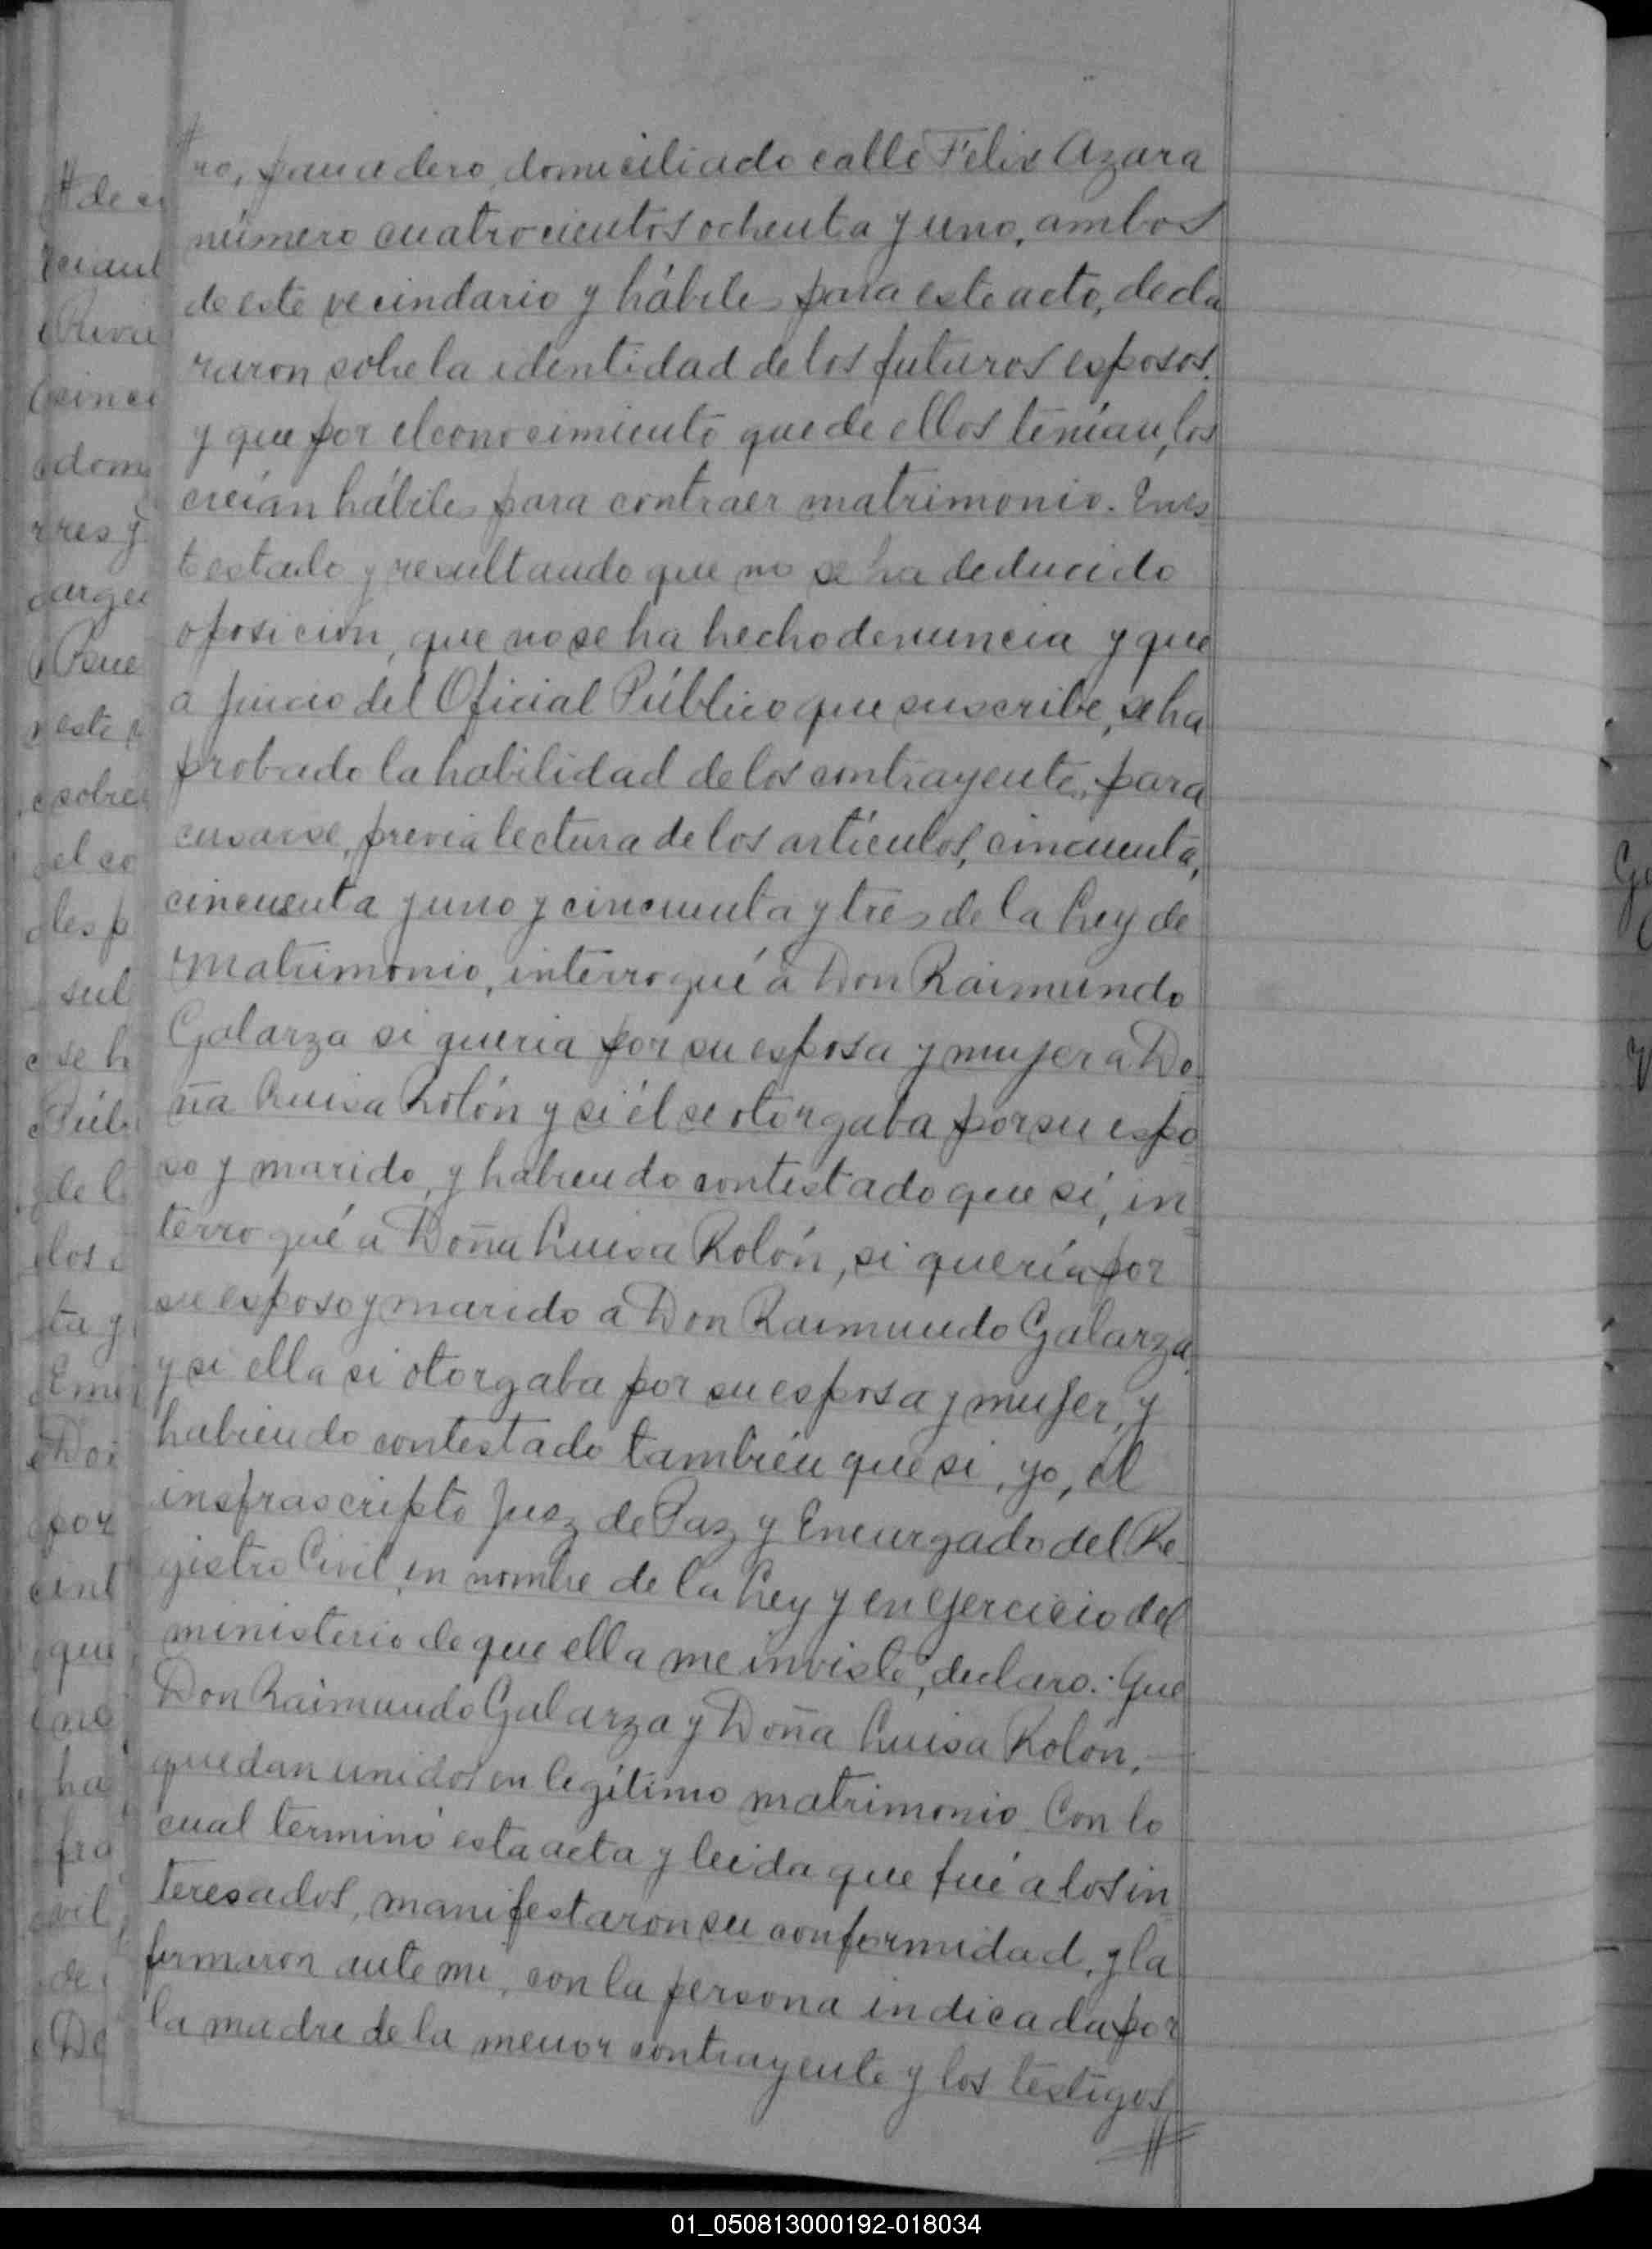 # ro, panadero, domiciliado calle Felix Azara
número cuatrocientos ochenta y uno, ambos
de este vecindario y hábiles para este acto, decla
raron sobre la identidad de los futuros esposos,
y que por el conocimiento que de ellos tenían, los
creían hábiles para contraer matrimonio. En es
te estado y resultando que no se ha deducido
oposición, que no se ha hecho denuncia y que
a juicio del Oficial Público que suscribe, se ha
probado la habilidad de los contrayentes, para
casarse, previa lectura de los artículos, cincuenta,
cincuenta y uno y cincuenta y tres de la Ley de
Matrimonio, interrogué a Don Raimundo
Galarza si queria por su esposa y mujer a Do-
ña Luisa Rolón y si él se otorgaba por su espo
so y marido, y habiendo contestado que sí, in
terrogué a Doña Luisa Rolón, si quería por
su esposo y marido a Don Raimundo Galarza,
y si ella si otorgaba por su esposa y mujer, y
habiendo contestado también que si, yo, él
insfrascripto Juez de Paz y Encargado del Re-
gistro Civil, en nombre de la Ley y en ejercicio del
ministerio de que ella me inviste, declaro: Que
Don Raimundo Galarza y Doña Luisa Rolón, —
quedan unidos en legítimo matrimonio. Con lo
cual terminó esta acta y leida que fué a los in
teresados, manifestaron su conformidad, y la
firmaron ante mi, con la persona indicada por
la madre de la menor contrayente y los testigos
#
# de
Pue
este
sobre
el co
les p
sul
se h
Púb
de l
los
ta y
por
que
no
ha
fra
vil,
de
De
01_050813000192-018034